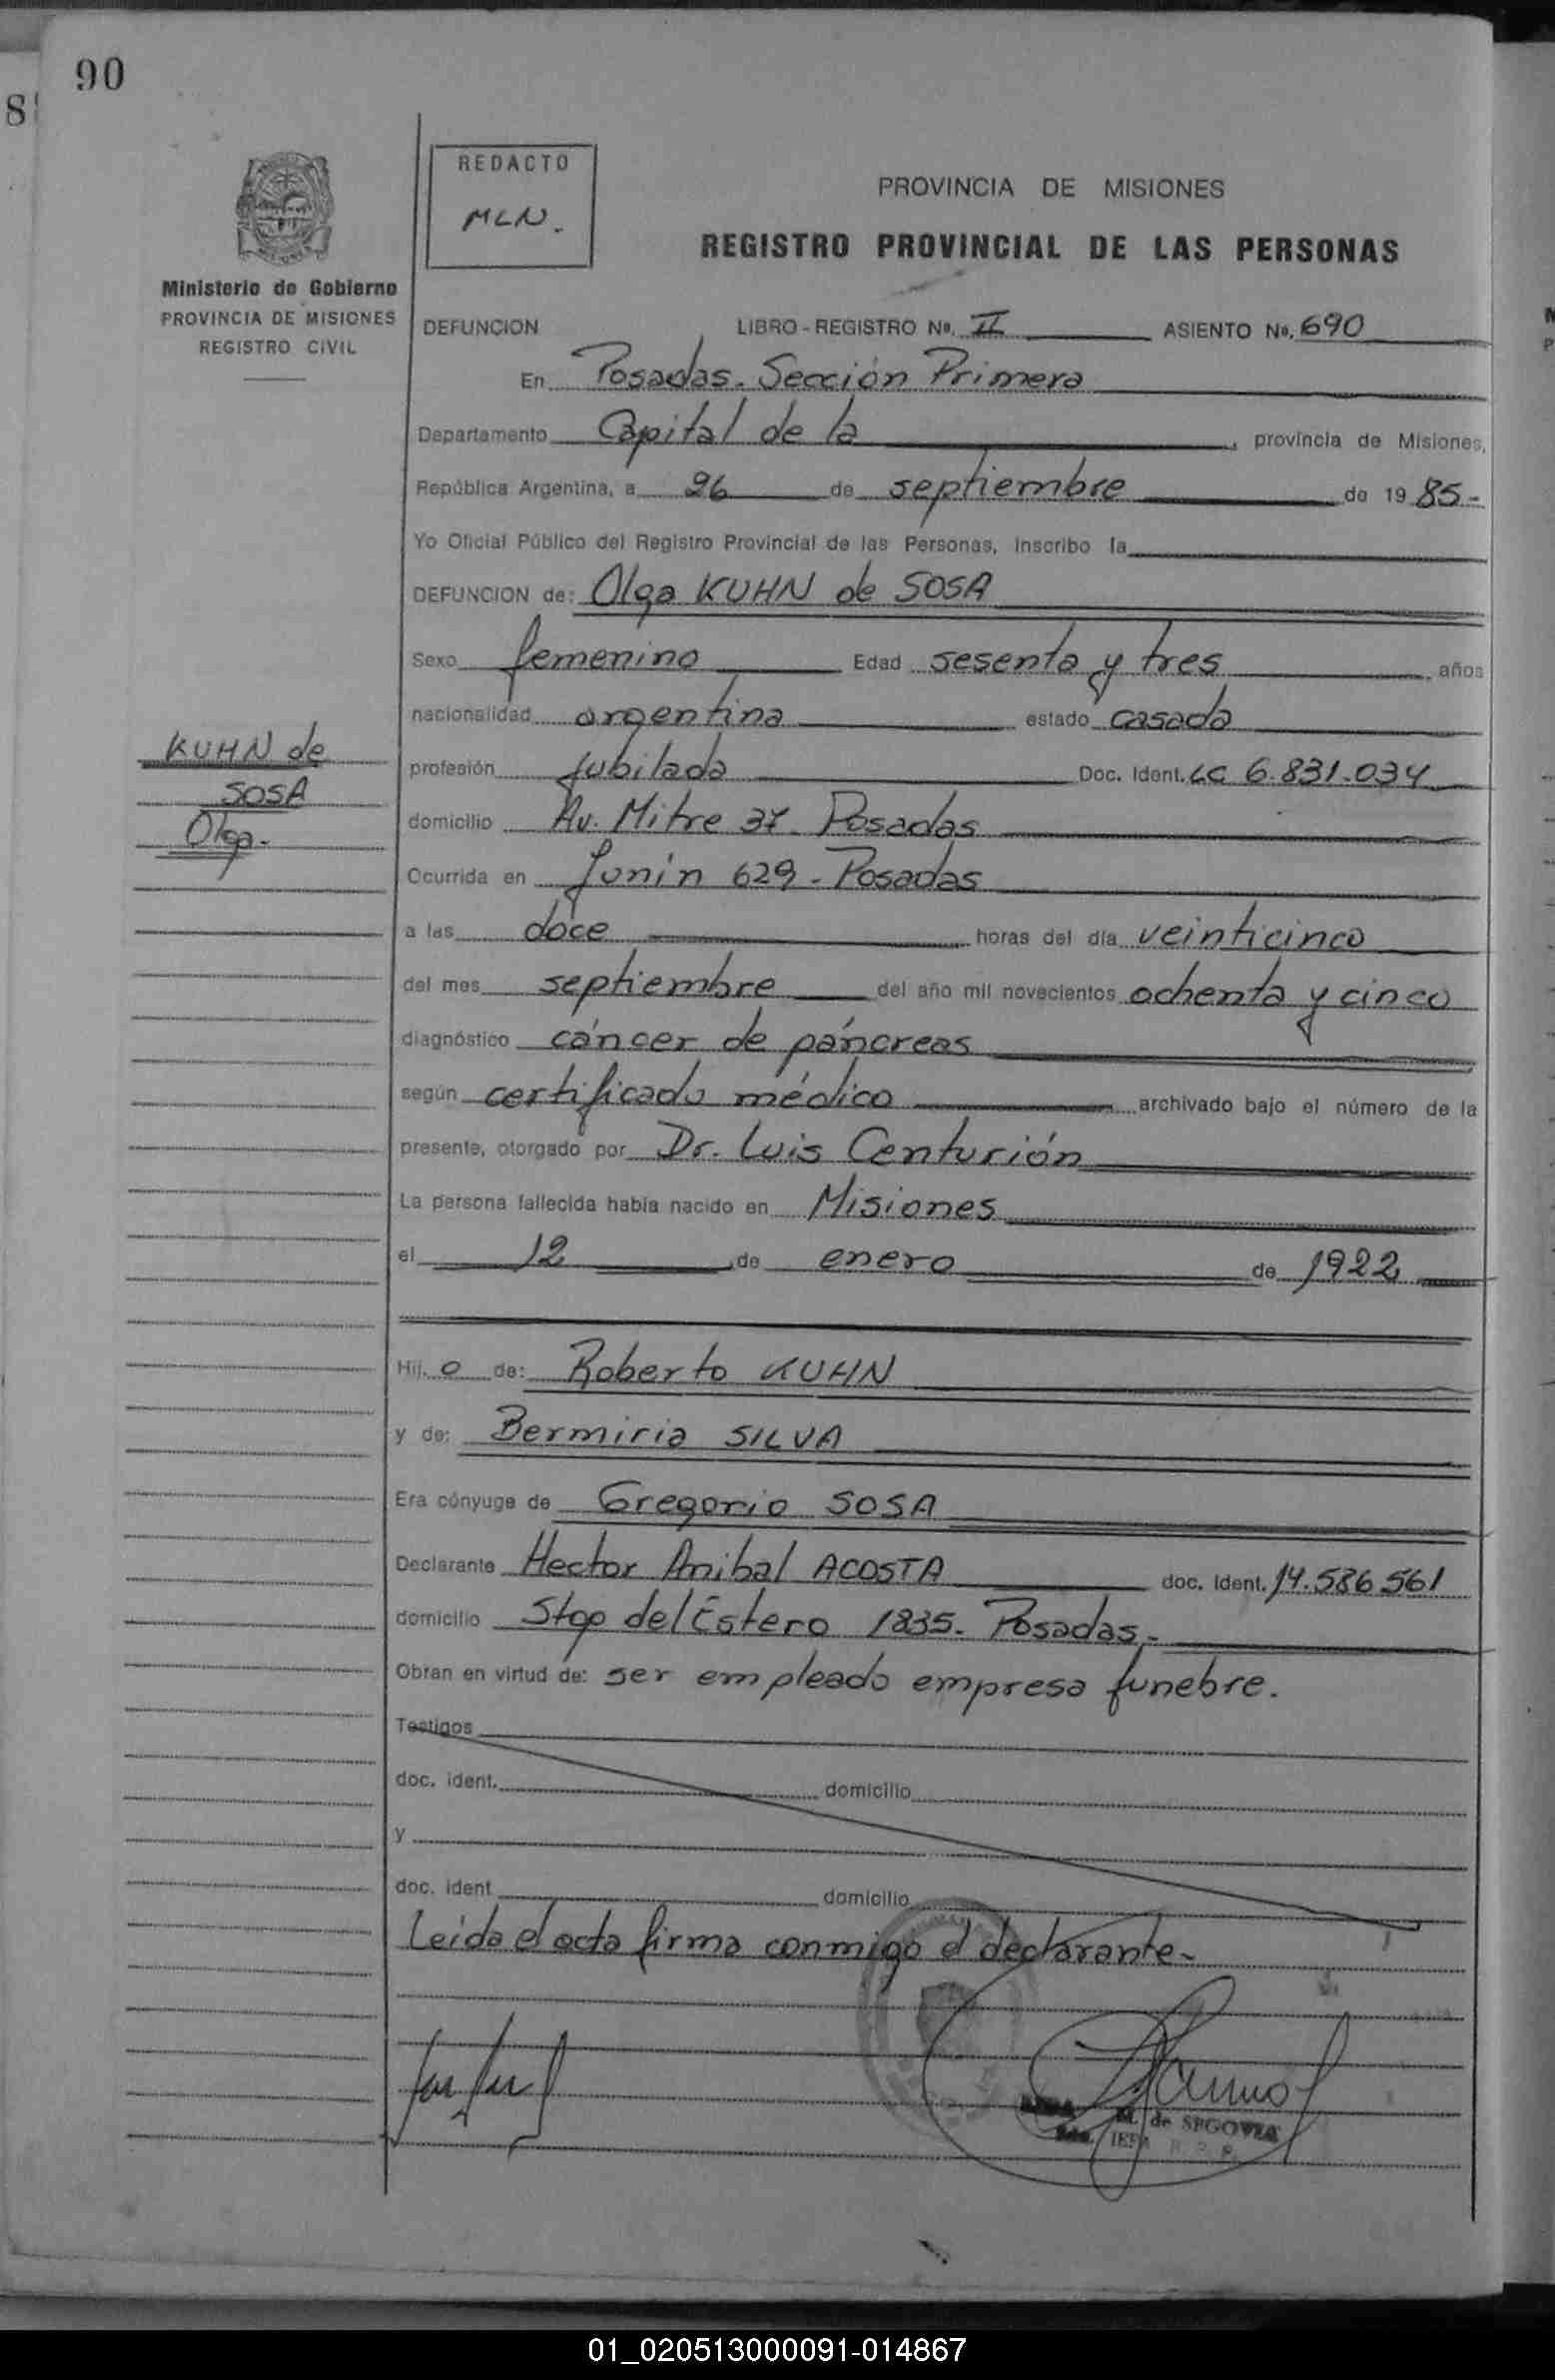 90
8
REDACTO
MLN.
PROVINCIA DE MISIONES
REGISTRO PROVINCIAL DE LAS PERSONAS
Ministerio de Gobierno
PROVINCIA DE MISIONES
REGISTRO CIVIL
DEFUNCION LIBRO - REGISTRO No. II ASIENTO No. 690
En Posadas. Sección Primera
Departamento Capital de la , provincia de Misiones,
República Argentina, a 26 de septiembre de 19 85-
Yo Oficial Público del Registro Provincial de las Personas, inscribo la
DEFUNCION de: Olga KUHN de SOSA
Sexo femenino Edad sesenta y tres , años
nacionalidad argentina estado casada
KUHN de
SOSA
Olga.
profesión jubilada Doc. Ident. LC 6.831.034
domicilio Av. Mitre 37. Posadas
Ocurrida en Junín 629 - Posadas
a las doce horas del día veinticinco
del mes septiembre del año mil novecientos ochenta y cinco
diagnóstico cáncer de páncreas
según certificado médico archivado bajo el número de la
presente, otorgado por Dr. Luis Centurión
La persona fallecida habia nacido en Misiones
el 12 de enero de 1922
Hij. o de: Roberto KUHN
y de: Bermiria SILVA
Era cónyuge de Gregorio SOSA
Declarante Hector Anibal ACOSTA doc. Ident. 14.586 561
domicilio Stgo del Estero 1835. Posadas.-
Obran en virtud de: ser empleado empresa funebre.
Testigos
doc. ident. domicilio
y
doc. ident domicilio
Leída el acta firma conmigo el declarante-
M. de SEGOVIA
01_020513000091-014867